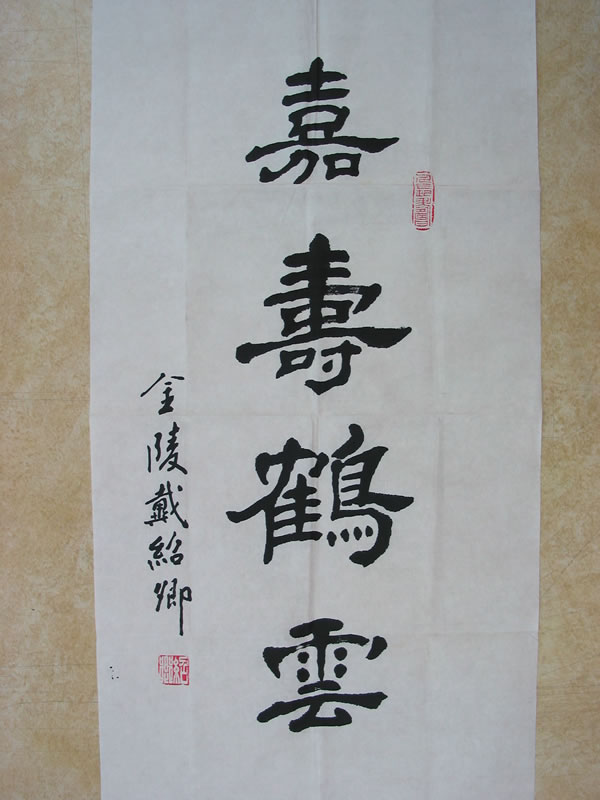 嘉壽鶴雲
金陵戴紹卿